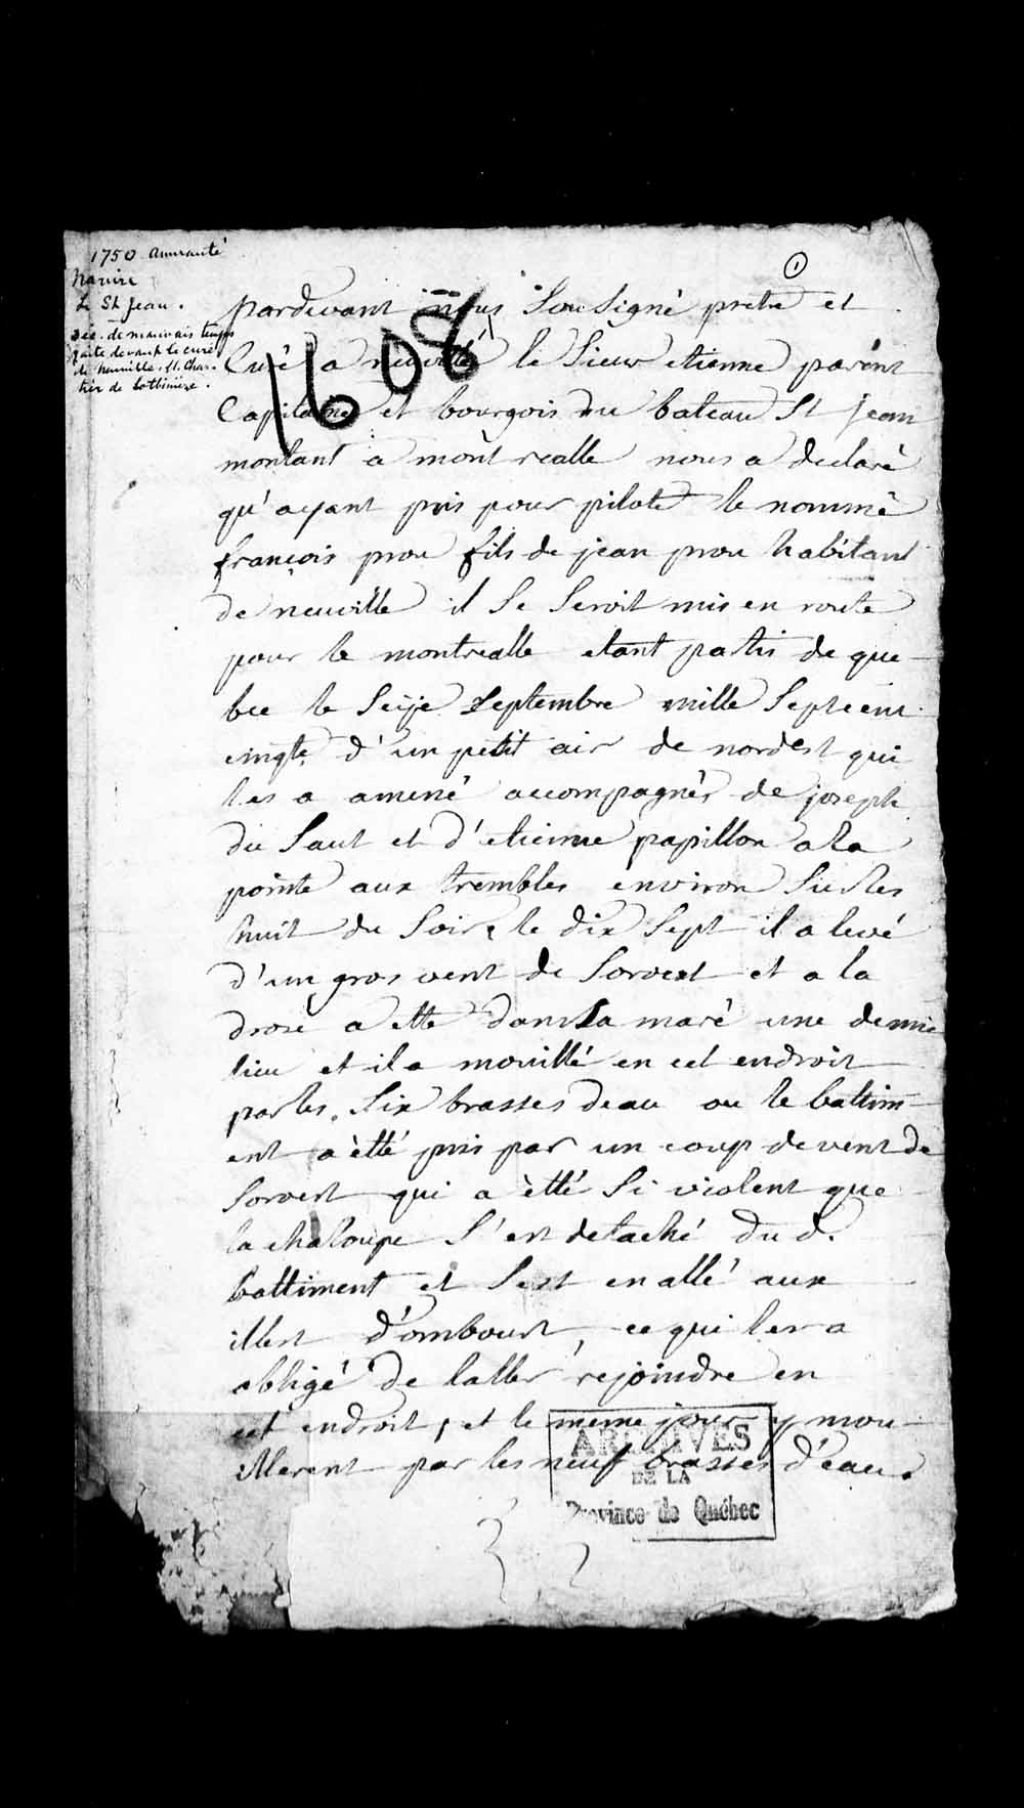 1750 Amirauté
Navire
Le St Jean.
Déc. de mauvais temps
faite devant le curé
de Neuville, M. Char-
tier de Lotbinière.
1
1608
pardevant nous Sousigné pretre et
Curé a neuville le Sieur etienne parent
Capitaine et bourgois du bateau St jean
montant a montrealle nous a declaré
qu'ayant pris pour pilote le nommé
françois prou fils de jean prou habitant
de neuville il Se Seroit mis en route
pour le montrealle etant partis de que-
bec le Seije Septembre mille Sept cent
d'un petit air de nordest qui
les a amené accompagnér de joseph
du Saut et d'etienne papillon a la
pointe aux trembles environ Sur les
huit du Soir, le dix Sept il a levé
d'un gros vent de Sorvest et a la
a etté dans La maré une demie
lieu et il a mouillé en cet endroit
par les Six brasses deau ou le battim-
ent a étté pris par un coup de vent de
Sorvest qui a étté Si violent que
la chaloupe S'est detaché du d.
battiment et Sest en allé aux
illest d'ombourt, ce qui les a
obligé de laller rejoindre en
cet endroit, et le meme jour y mou-
illerent par les neuf brasses d'eau.
ARCHIVES
DE LA
Province de Québec